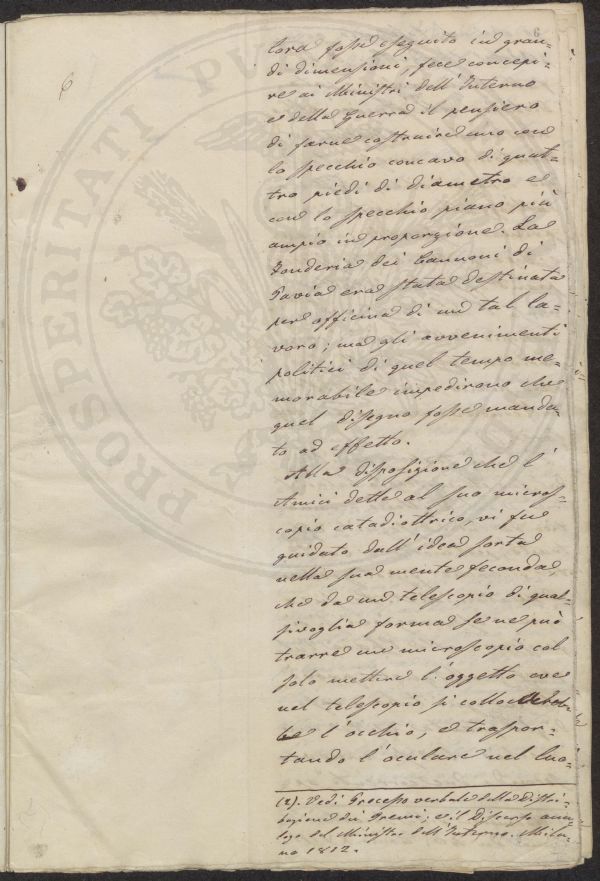 6
6
tora fosse eseguito in gran-
di dimensioni, fece concepi-
re ai Ministri dell'Interno
e della Guerra il pensiero
di farne costruire uno con
lo specchio concavo di quat-
tro piedi di diametro e
con lo specchio piano più
ampio in proporzione. La
Fonderia dei Cannoni di
Pavia era stata destinata
per officina di un tal la-
voro; ma gli avvenimenti
politici di quel tempo me-
morabile impedirono che
quel disegno fosse manda-
to ad effetto.
Alla disposizione che l'
Amici dette al suo micros-
copio catadiottrico, vi fu
guidato dall'idea sorta
nella sua mente feconda,
che da un telescopio di qual-
sivoglia forma se ne può
trarre un microscopio col
solo mettere l'oggetto ove
nel telescopio si colloche­reb-
be l'occhio, e traspor-
tando l'oculare nel luo-
(2). Vedi Processo verbale della Distri-
buzione dei Premi; e il Discorso ana-
logo del Ministro dell'Interno. Mila-
no 1812.
PROSPERITATI PU